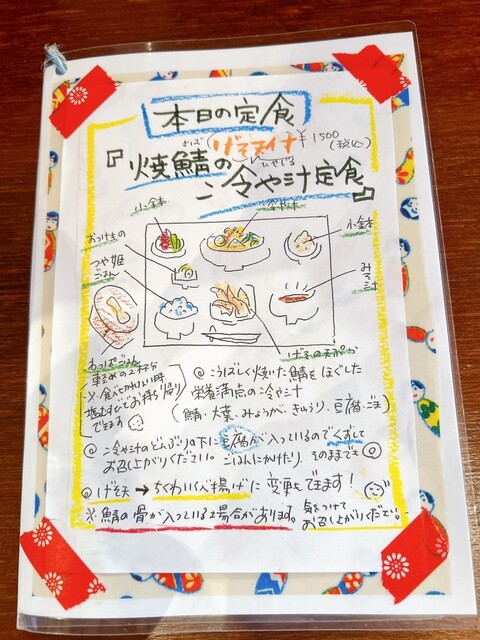 本日の定食
さば
げそスイナ ¥1500
(税込)
『焼鯖の
ひやじる
冷や汁定食』
小鉢
冷や汁
小鉢
おつけもの
つや姫
ごはん
みそ汁
わっぱごはん
げその天ぷら
※食べきれない時
塩むすびでお持ち帰り
できます
◎こうばしく焼いた鯖をほぐした
栄養満点の冷や汁
(鯖・大葉・みょうが・きゅうり・豆腐・ごま)
◎冷や汁のどんぶりの下に豆腐が入っているのでくずして
お召し上がりください。ごはんにかけたり、そのままでも◎
◎げそ天→ちくわいそべ揚げに変更もできます!
※鯖の骨が入っている場合があります。気をつけて
お召し上がりください。